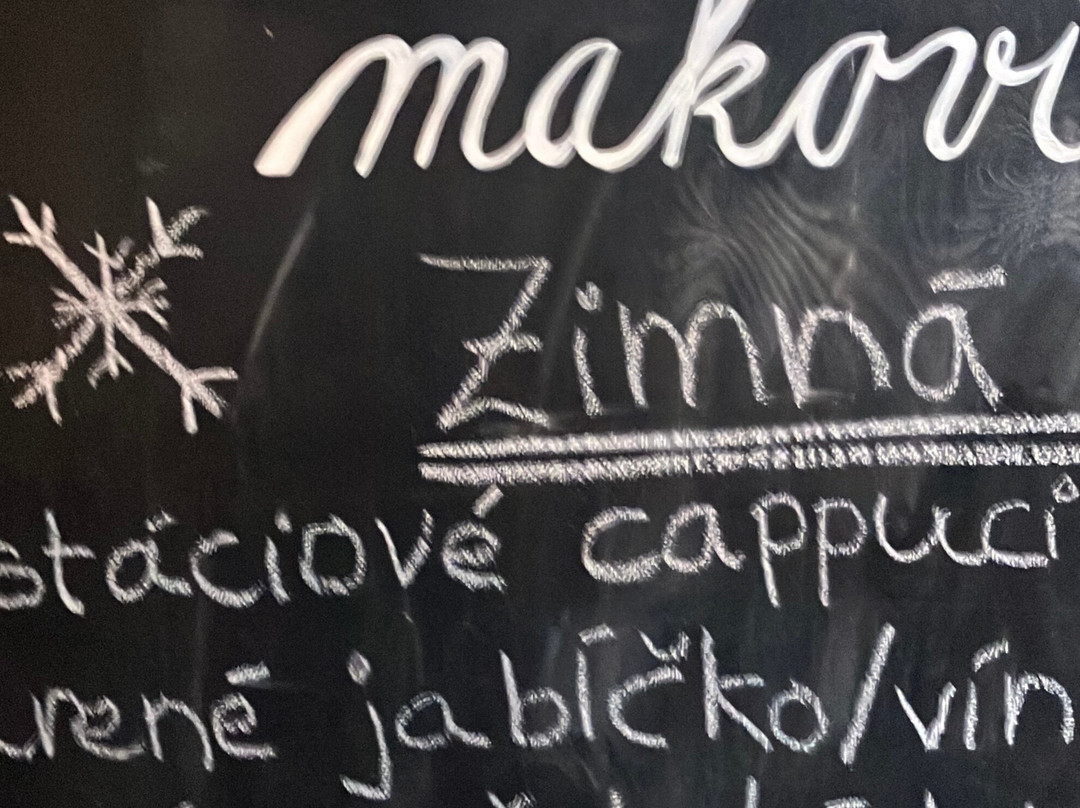 makov
Zimná
stáciové cappuci
vené jabĺčko/vín